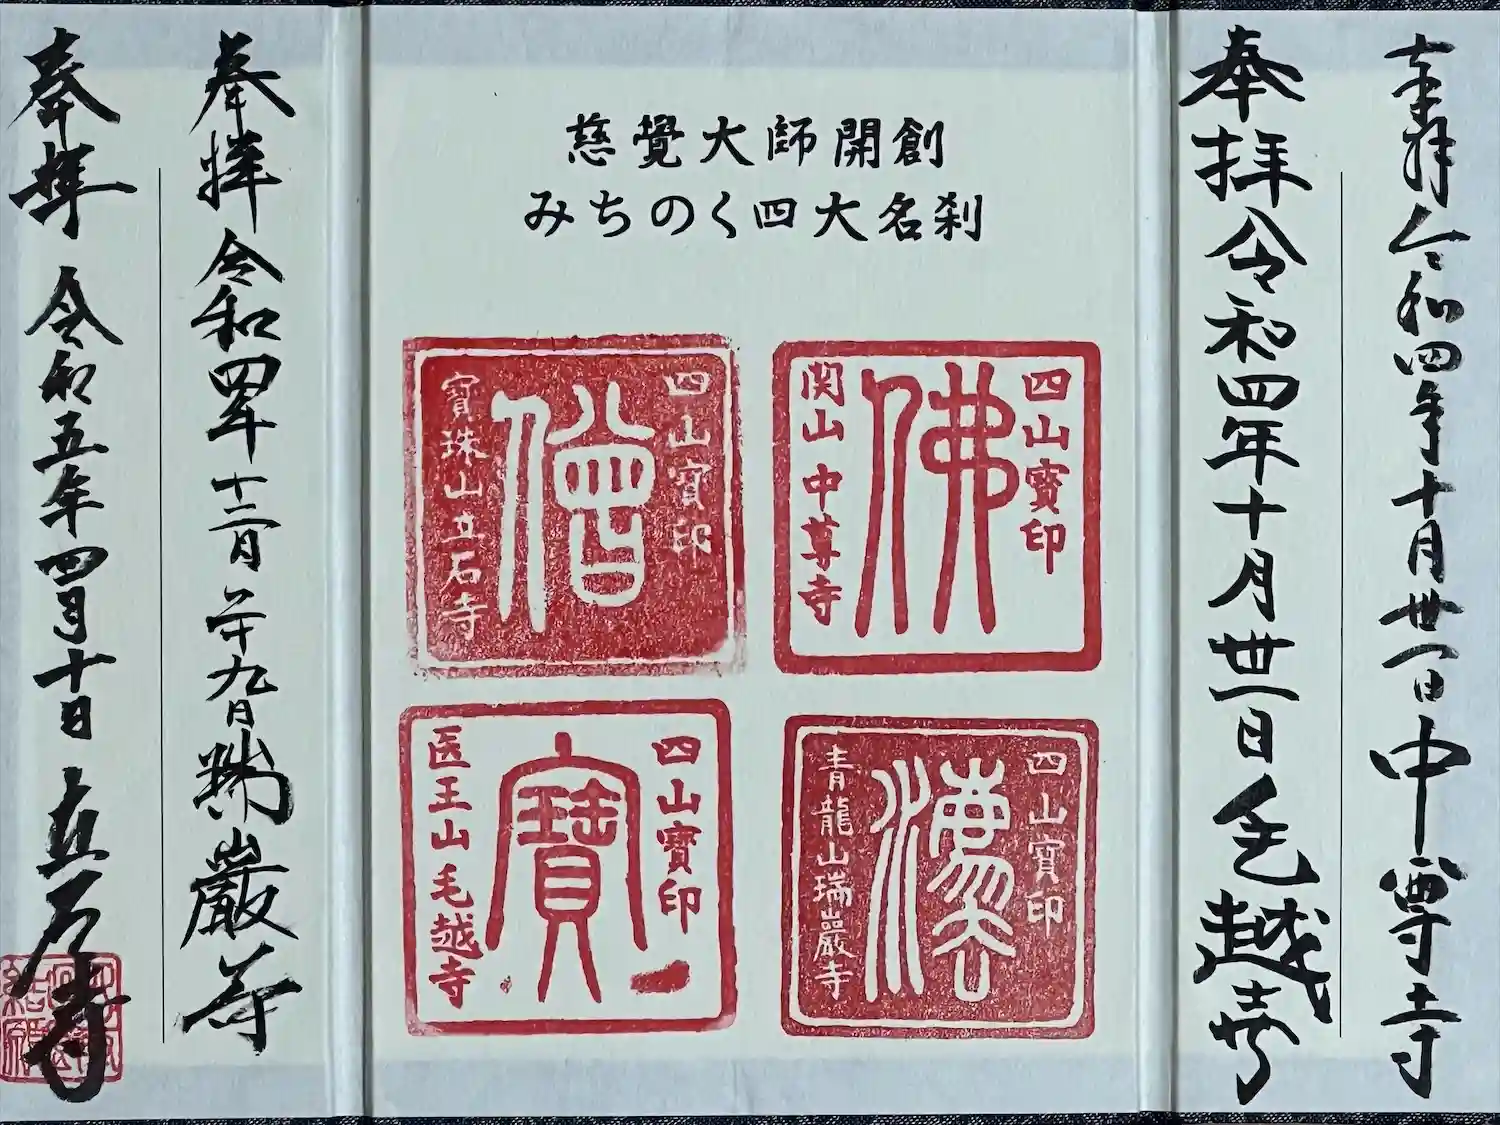 奉拝 令和四年十月卅一日 中尊寺
奉拝 令和四年十月卅一日 毛越寺
慈覺大師開創
みちのく四大名刹
四山寳印
佛
関山 中尊寺
四山寳印
僧
寳珠山立石寺
四山寳印
法
青龍山瑞巖寺
四山寳印
寳
医王山毛越寺
奉拝 令和四年十二月 廿九日 瑞巌寺
奉拝 令和五年四月十日 立石寺